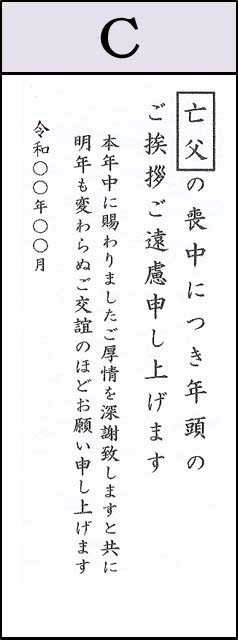 C
亡父の喪中につき年頭の
ご挨拶ご遠慮申し上げます
本年中に賜わりましたご厚情を深謝致しますと共に
明年も変わらぬご交誼のほどお願い申し上げます
令和〇〇年〇〇月